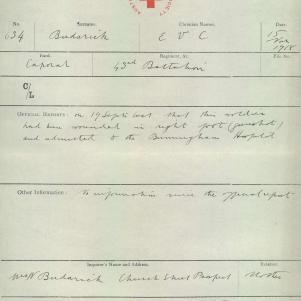 SOCIETY
No. Surname. Christian Names. Date.
634 Budarick E V C 15 1918
Rank. Regiment, &c. File No.
Corporal 43rd Battalion
C/L
OFFICIAL REPORTS: on 19 Septr that this soldier
had been wounded in right foot (gunshot)
and admitted to the Birmingham Hospital
Other Information: No information since the official report
Inquirer's Name and Address. Relation.
Mrs W Budarick Church Street Prospect Mother